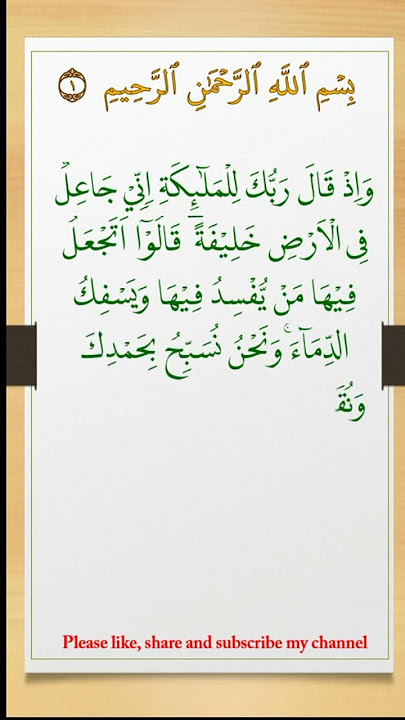 بِسْمِ ٱللَّهِ ٱلرَّحْمَٰنِ ٱلرَّحِيمِ ١
وَاِذْ قَالَ رَبُّكَ لِلْمَلٰٓئِكَةِ اِنِّيْ جَاعِلٌ
فِى الْاَرْضِ خَلِيْفَةً ؕ قَالُوْٓا اَتَجْعَلُ
فِيْهَا مَنْ يُّفْسِدُ فِيْهَا وَيَسْفِكُ
الدِّمَآءَ ۚ وَنَحْنُ نُسَبِّحُ بِحَمْدِكَ
وَنُقَ
Please like, share and subscribe my channel